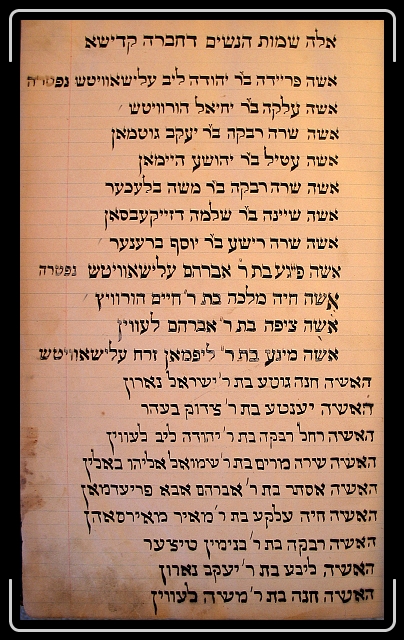 אלה שמות הנשים דחברה קדישא
אשה פריידה בר יהודה ליב עלישאוויטש נפטרה
אשה עלקה בר יחיאל הורוויטש
אשה שרה רבקה בר יעקב גוטמאן
אשה עטיל בר יהושע היימאן
אשה שרה רבקה בר משה בלעכער
אשה שיינה בר שלמה דזייקעבסאן
אשה שרה רישע בר יוסף ברענער
אשה פיגע בת ר' אברהם עלישאוויטש נפטרה
אשה חיה מלכה בת ר' חיים הורוויץ
אשה ציפה בת ר' אברהם לעווין
אשה מינע בת ר' ליפמאן זרח עלישאוויטש
האשיה חנה גוטע בת ר' ישראל נארון
האשיה יענטע בת ר' צידוק בעהר
האשיה רחל רבקה בת ר' יהודה ליב לעוויין
האשיה שירה מרים בת ר' שימואל אליהו באלין
האשיה אסתר בת ר' אברהם אבא פריעדמאן
האשיה חיה עלקע בת ר' מאיר מאירסאהן
האשיה רבקה בת ר' בנימין טיצער
האשיה ליבע בת ר' יעקב נארון
האשיה חנה בת ר' משיה לעוויין